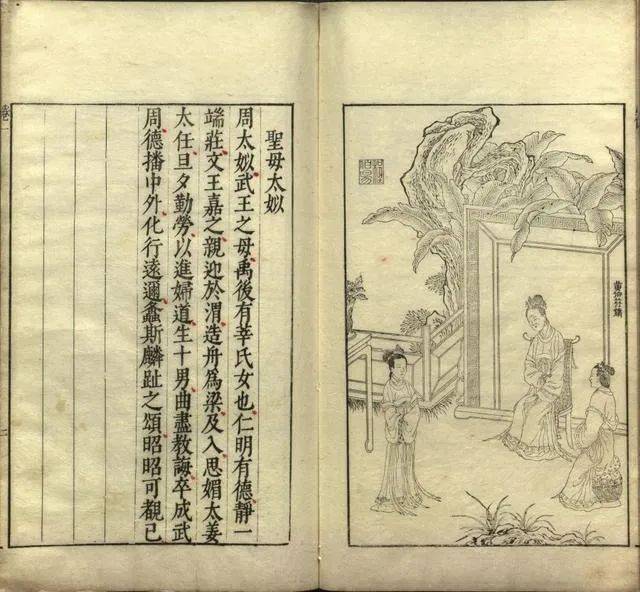 聖母太姒
周太姒武王之母禹後有莘氏女也仁明有德靜一
端莊文王嘉之親迎於渭造舟爲梁及入思媚太姜
太任旦夕勤勞以進婦道生十男曲盡教誨卒成武
周德播中外化行遠邇螽斯麟趾之頌昭昭可觀已
卷一